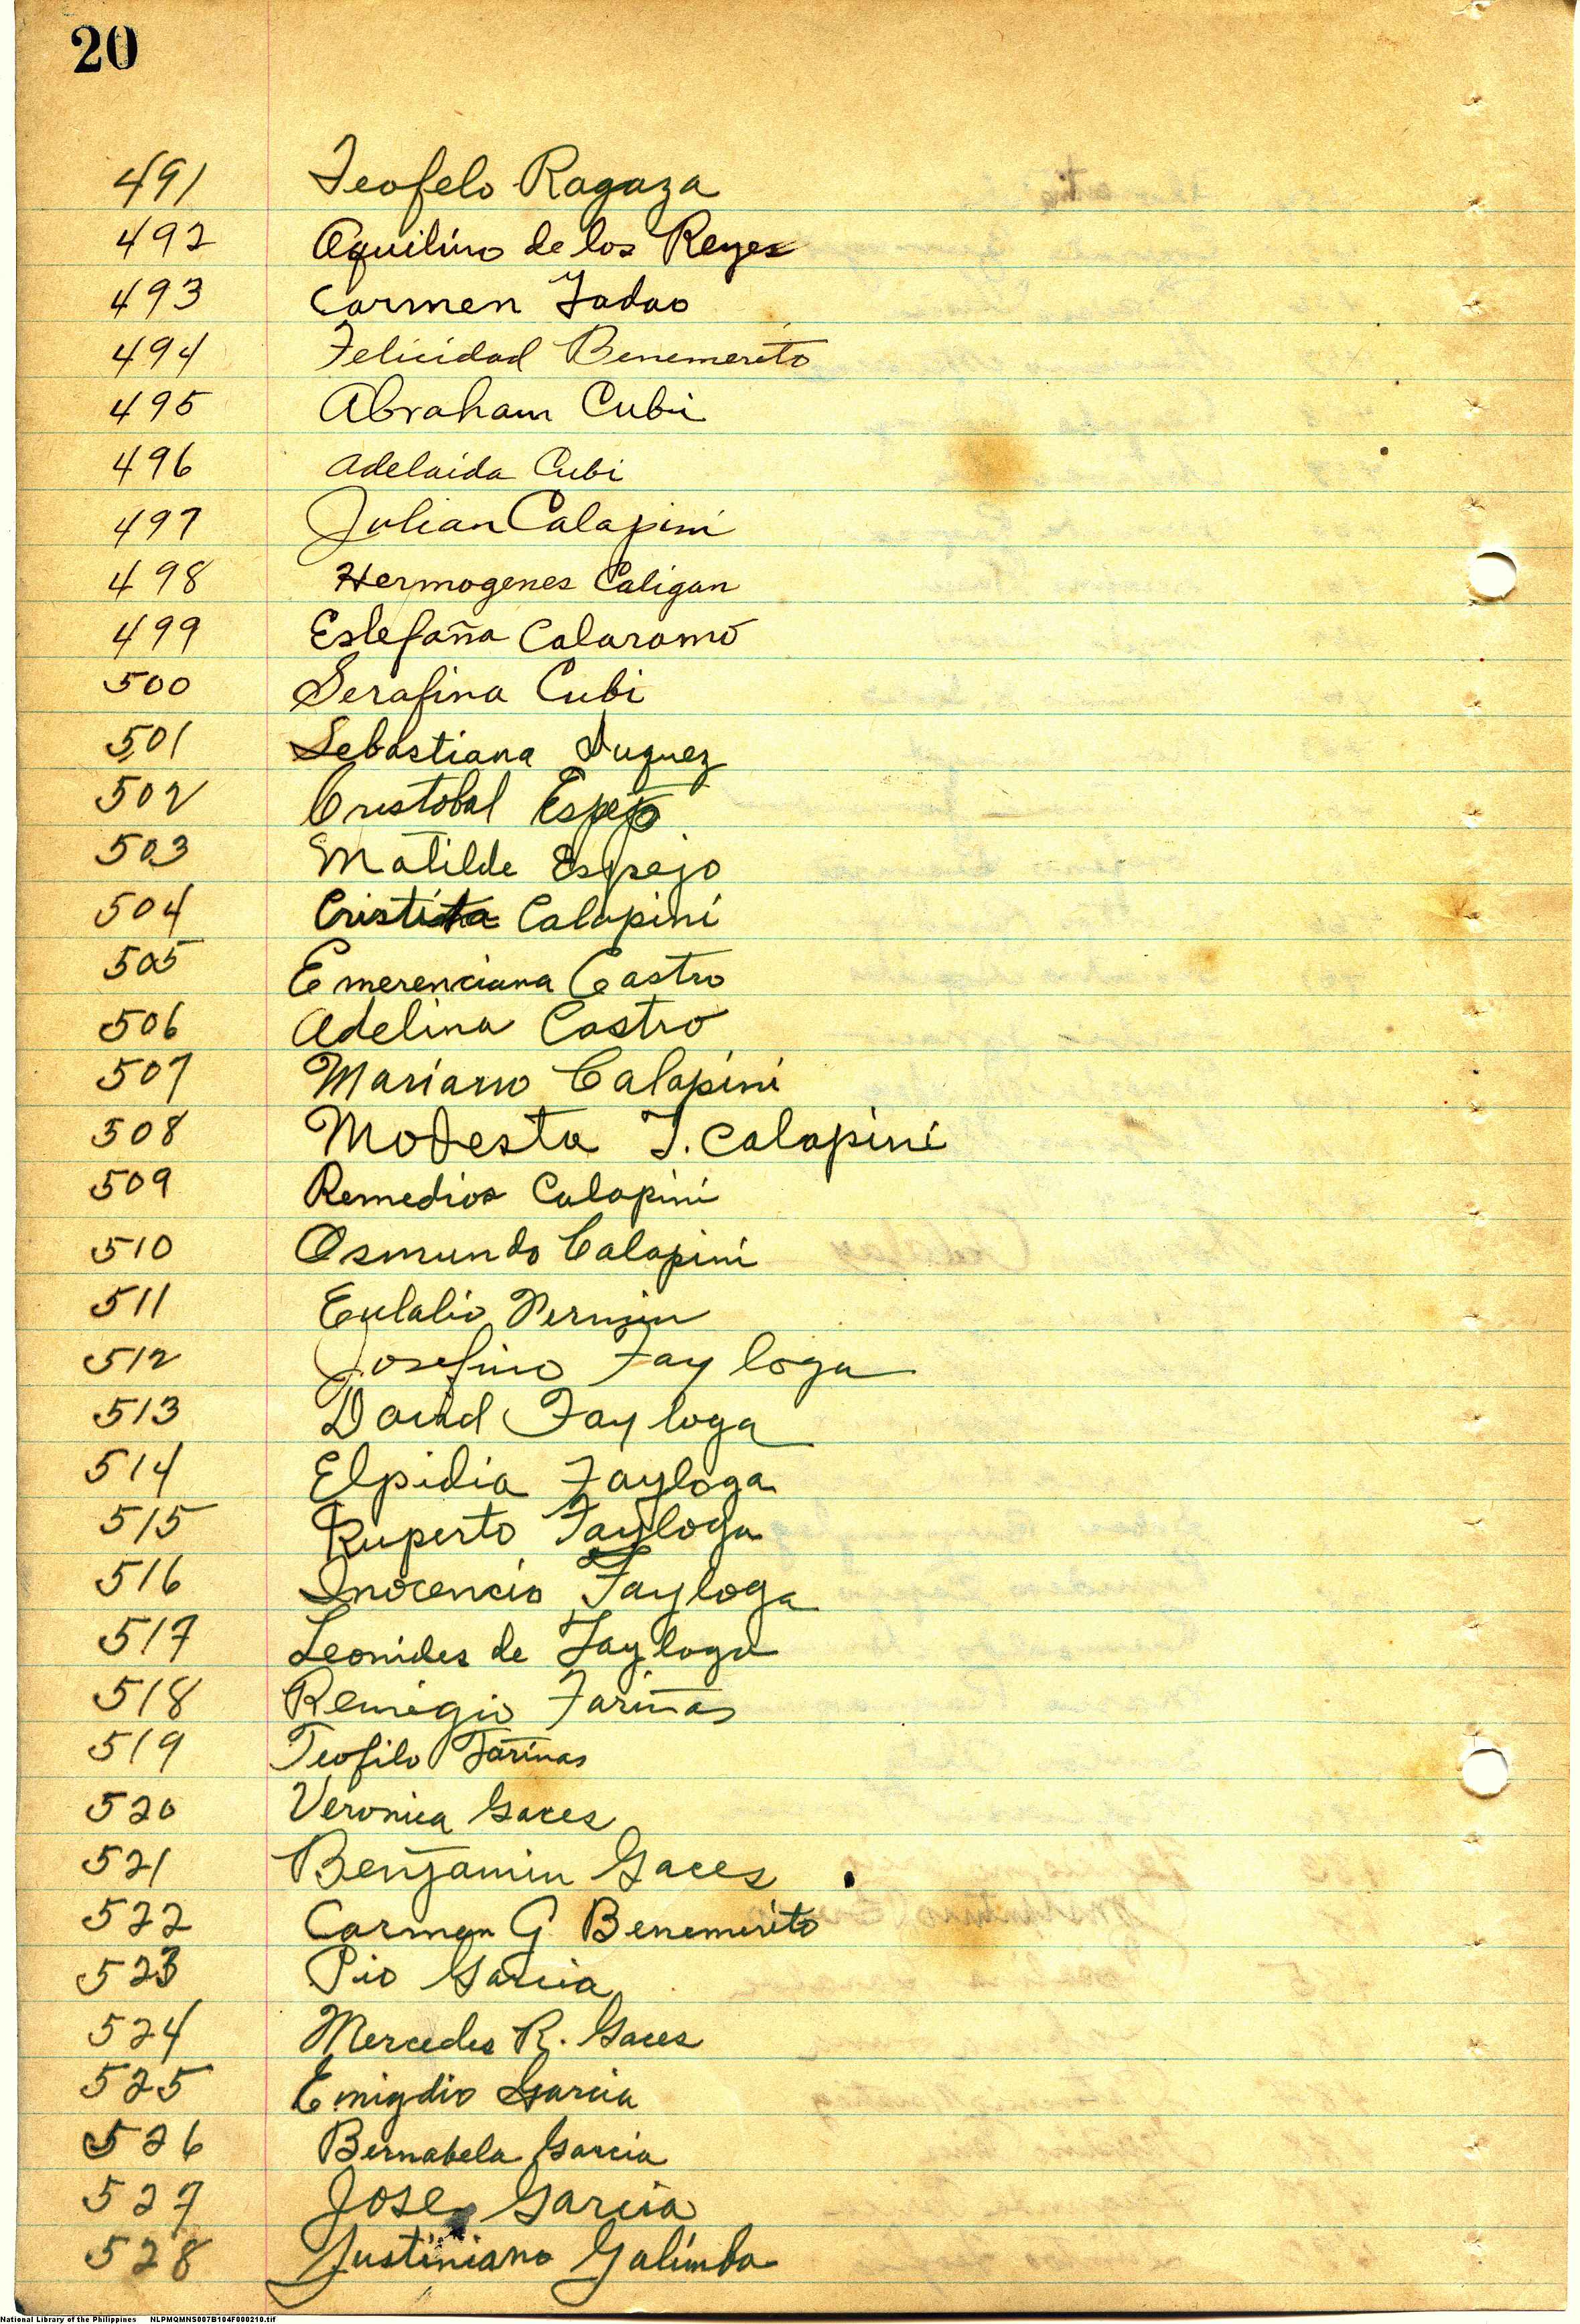 20
491 Teofelo Ragaza
492 Aquilino de los Reyes
493 Carmen Tadao
494 Felicidad Benemerito
495 Abraham Cubi
496 Adelaida Cubi
497 Julian Calapini
498 Hermogenes Caligan
499 Estefaña Calaramo
500 Serafina Cubi
501 Sebastiana
502 Cristobal Espejo
503 Matilde Espejo
504 Calapini
505 Emerenciana Castro
506 Adelina Castro
507 Mariano Calapini
508 Modesta T. Calapini
509 Remedios Calapini
510 Osmundo Calapini
511 Eulalio
512 Josefino Tayloga
513 David Tayloga
514 Elpidia Tayloga
515 Ruperto Tayloga
516 Inocencio Tayloga
517 Leonides de Tayloga
518 Remigio Fariñas
519 Teofilo Fariñas
520 Veronica Gaces
521 Benjamin Gaces
522 Carmen G. Benemerito
523 Pio Garcia
524 Mercedes R. Gaces
525 Emigdio Garcia
526 Bernabela Garcia
527 Jose Garcia
528 Justiniano Galimba
National Library of the Philippines NLPMQMNS007B104F000210.tif